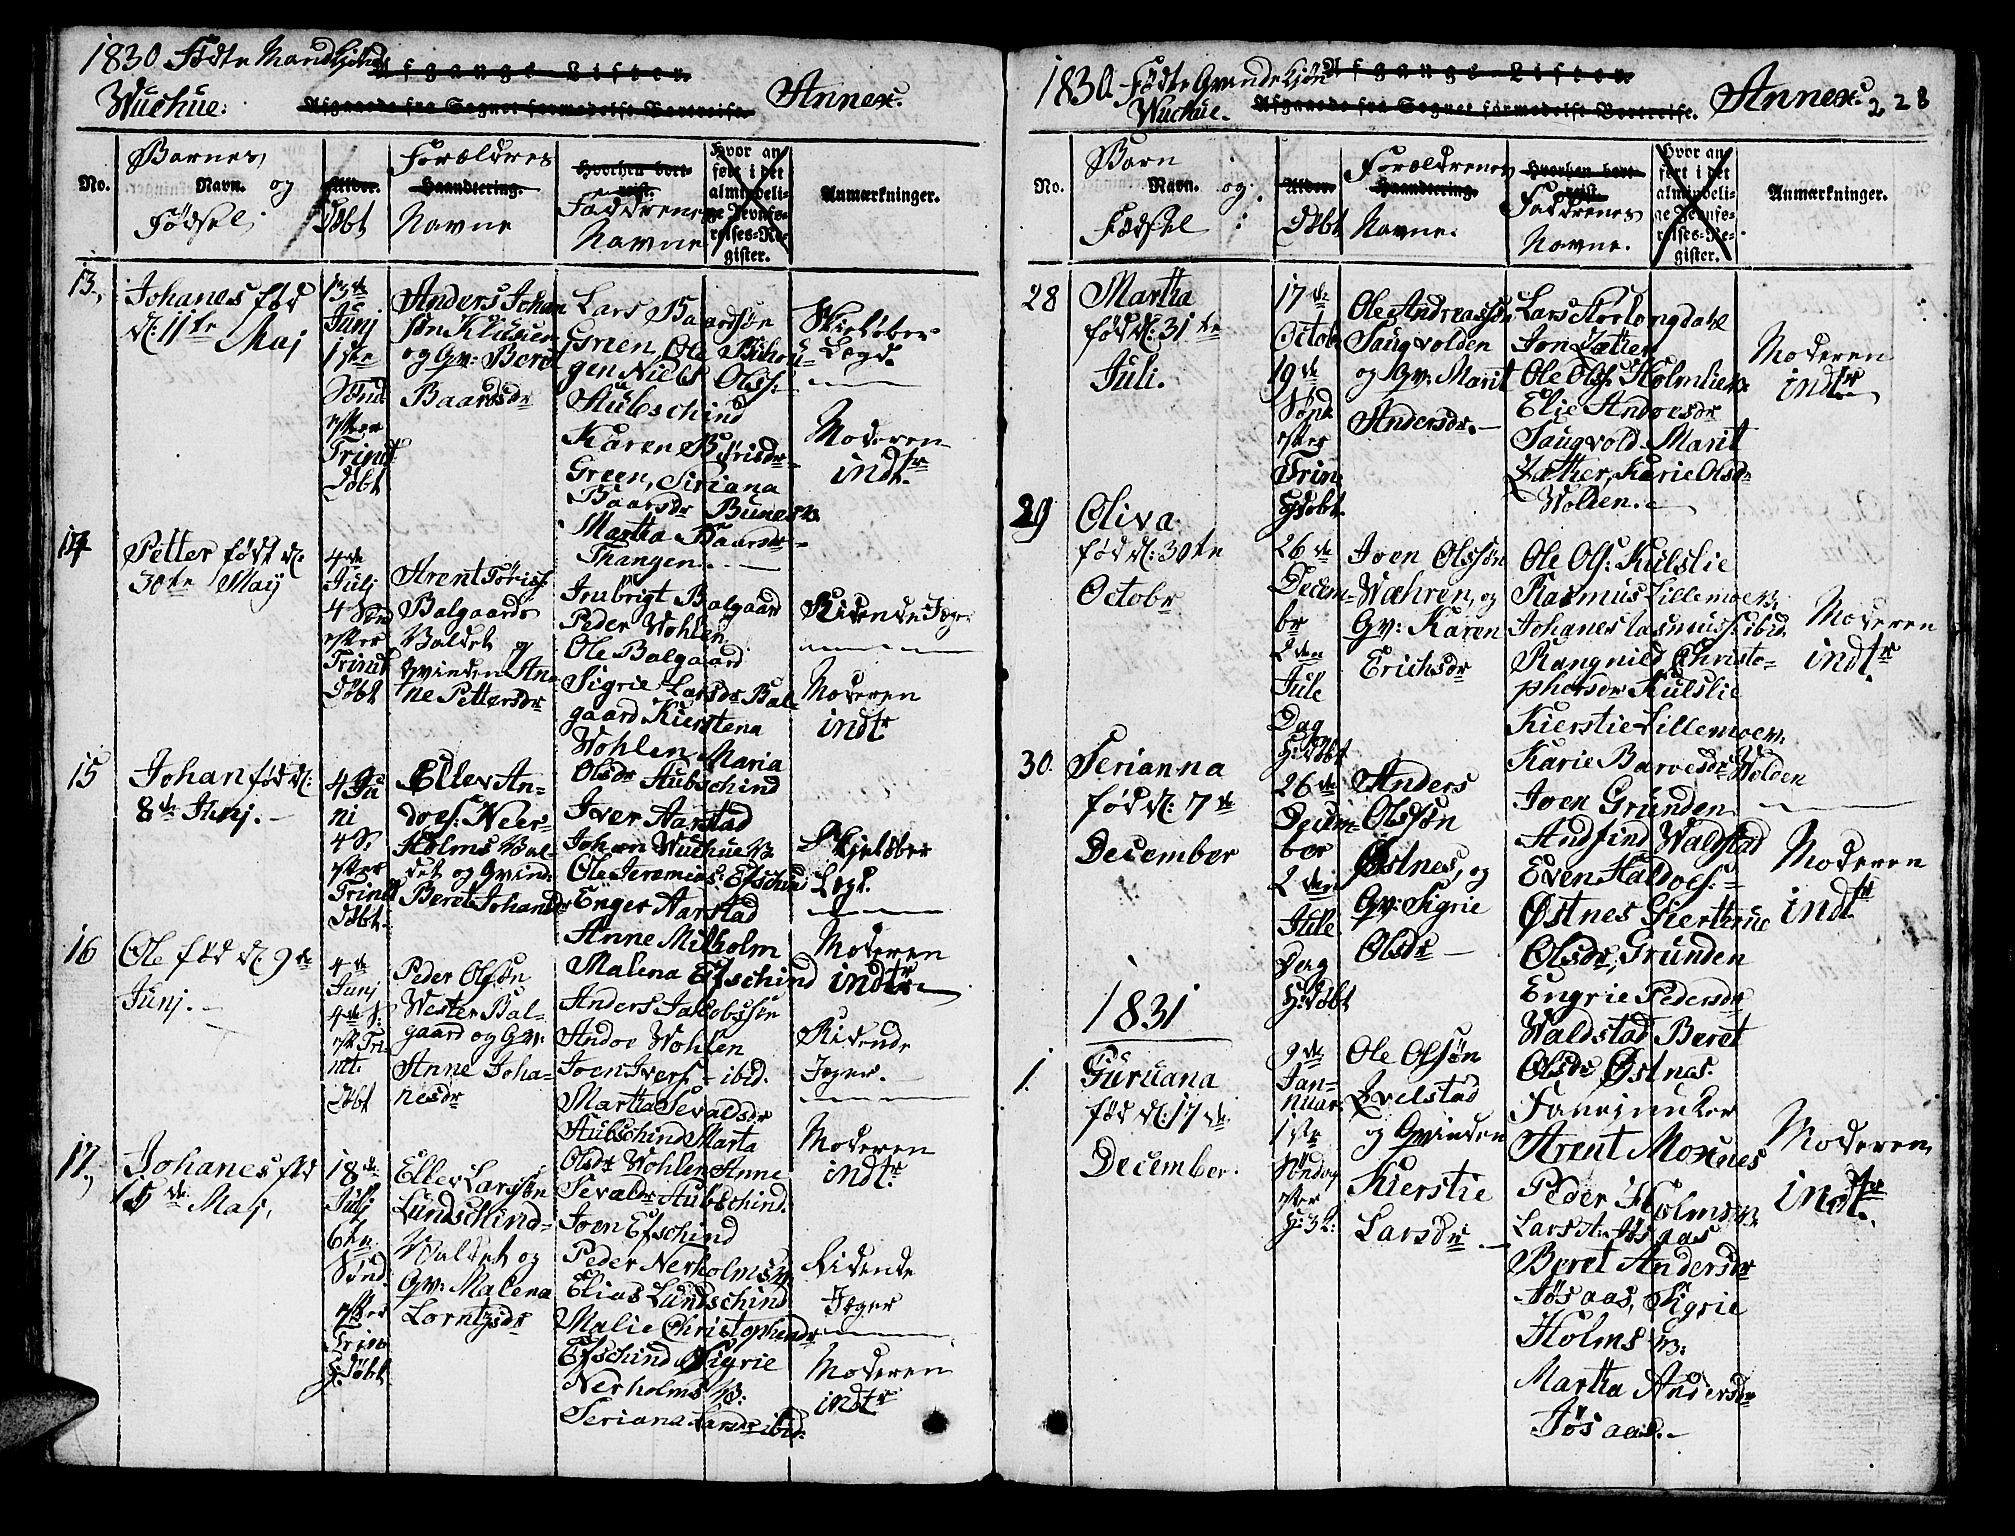 1830 Födte Mandkjön
Afgangs-Lister.
Wuchue:
Afgaaede fra Sognet formedelst Bortreise.
Annex.
No.
Barnes
Navn. og
Fødsel
Alder.
Døbt
Forældres
Haandtering.
Navne
Hvorhen bort-
reist.
Faddrenes
Navne
Hvor an
ført i det
almindeli-
ge Jevnfø-
relses-Re-
gister.
Anmærkninger.
13,
Johanes fød
d: 11te Maj
13de
Junj
1ste
Sønd
efter
Trinit
Døbt
Anders Johan
og Gv: Beret
Baardsdr
Lars Baardsøn
Green, Ole
gen Niels Olss:
Stübschind
Karen
Green, Siriana
Baarsdr
Martha Baarsdr
Thangen.
Skieløber
Lægd.
Moderen
indtr
14
Petter født d:
30te Maij
4de
Julj
4 Sønd
efter
Trinit
Døbt
Arent
Balgaards
Valdet og
Qvinden An-
ne Pettersdr
Balgaard
Peder Wohlen
Ole Balgaard
Sigrie Larsdr Bal-
gaard Kierstena
Wohlen Maria
Olsdr Stubschind
Ridende Jæger
Moderen
indtr
15
Johan fød d:
8de Junj.
4 Ju
ni
4 S:
efter
Trinit
Døbt.
Ellev An-
does: Neer-
Holms Val-
det og Qvind:
Beret Johansdr
Iver Aarstad
Johan Wuchue V.
Ole Jeremies: Efschin
Enger Aarstad
Anne Milholm
Malena Efschind
Skieløber
Legd.
Moderen
indtr
16
Ole fød d: 9de
Junj.
4de
Junj
4de S:
eft Tri-
nit.
Døbt
Peder Olsøn
Wester Bal-
gaard og Gv:
Anne Joha-
nesdr
Anders Jakobssen
Andoe Wohlen
Joen Ivers: ibid.
Martha Sevaldsdr
Stubschind Marta
Olsdr Wohlen Anne
Sevaldr Stubschind.
Ridende
Jeger.
Moderen
indtr.
17,
Johanes fød
15de Maj,
18de
Julj
6te
Sønd.
efter
Trini
H: Døbt
Ellev Larssøn
Lundschind-
Valdet og
Gv: Malena
Lorntzsdr
Joen Efschind
Peder Nerholms V.
Elias Lundschind
Malie Christophersdr
Efschind Sigrie
Nerholms V:
Seriana Larsdr ibid:
Ridende
Jæger
Moderen
indtr
1830. Födte Qvindekjön
Afgangs-Lister.
Wuchue.
Afgaaede fra Sognet formedelst Bortreise.
Annex.
228
No.
Barn
Navn. og
Fødsel :
Alder.
Döbt
Forældrenes
Haandtering.
Navne.
Hvorhen bort-
reist.
Faddrenes
Navne.
Hvor an
ført i det
almindeli-
ge Jevnfø-
relses-Re-
gister.
Anmærkninger.
28
Martha
fød d: 31te
Juli.
17de
Octobr
19de
Sønd
efter
Trin
Hdøbt.
Ole Andreassøn
Saugvolden
og Gv: Marit
Andersdr.
Lars Storlongdahl
Jon Sæther
Ole Ols: Holmlie V.
Elie Andoesdr
Saugvold Marit
Sæther, Karie Olsdr
Wolden.
Moderen
indtr
29
Oliva
fød d: 30te
Octobr
26de
Decem-
br
2den
Jule
Dag
H:døbt
Joen Olssøn
Wæhren, og
Gv: Karen
Erichsdr
Ole Ols: Kulslie
Rasmus Lillemoe V.
Johanes Rasmuss: ibid
Rangnild Christo-
phersdr Kulslie
Kierstie Lillemoe V.
Karie Barvesdr Wolden
Moderen
indtr.
30.
Serianna
fød d: 7de
December
26de
Decem-
ber
2den
Jule
Dag
H:døbt
Anders
Olssøn
Østnes, og
Gv: Sigrie
Olsdr
Joen Grunden
Andfind Waldstad
Even Haldoes:
Østnes Giertrue
Olsdr, Grunden
Engrie Pedersdr
Waldstad Beret
Olsdr Østnes.
Moderen
indtr
1831
1.
Guruana
fød d: 17de
December.
9de
Jan-
nuar
1ste
Søndag
efter
H: 3 K:
Ole Olsøn
Qvelstad
og Qvinden
Kierstie
Larsdr
Fanejunker
Arent Moxnes
Peder Holms V.
Lars A: Jøsaas
Beret Andersdr
Jøsaas, Sigrie
Holms V:
Martha Andersdr
Jøsaas.
Moderen
indtr.